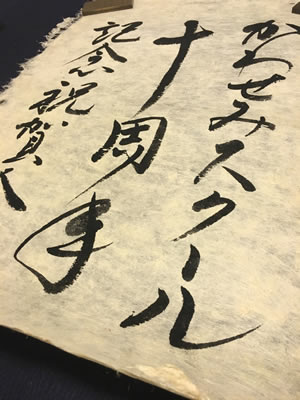 かわせみスクール
十周年
記念祝賀会